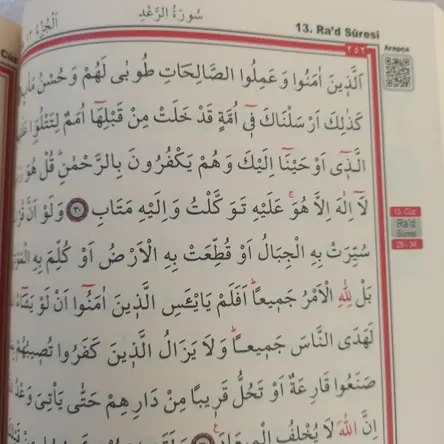 سُورَةُ الرَّعْدِ
اَلْجُزْءُ
13. Ra'd Sûresi
٢٥٢
Arapça
اَلَّذ۪ينَ اٰمَنُوا وَعَمِلُوا الصَّالِحَاتِ طُوبٰى لَهُمْ وَحُسْنُ مَاٰبٍ
كَذٰلِكَ اَرْسَلْنَاكَ ف۪ٓي اُمَّةٍ قَدْ خَلَتْ مِنْ قَبْلِهَٓا اُمَمٌ لِتَتْلُوَ۬ا
الَّذ۪ٓي اَوْحَيْنَٓا اِلَيْكَ وَهُمْ يَكْفُرُونَ بِالرَّحْمٰنِۜ قُلْ هُوَ
لَٓا اِلٰهَ اِلَّا هُوَۚ عَلَيْهِ تَوَكَّلْتُ وَاِلَيْهِ مَتَابِ ﴿٣٠﴾ وَلَوْ اَنَّ
سُيِّرَتْ بِهِ الْجِبَالُ اَوْ قُطِّعَتْ بِهِ الْاَرْضُ اَوْ كُلِّمَ بِهِ
بَلْ لِلّٰهِ الْاَمْرُ جَم۪يعاًۜ اَفَلَمْ يَايْـَٔسِ الَّذ۪ينَ اٰمَنُٓوا اَنْ لَوْ
لَهَدَى النَّاسَ جَم۪يعاًۜ وَلَا يَزَالُ الَّذ۪ينَ كَفَرُوا تُص۪يبُهُمْ
صَنَعُوا قَارِعَةٌ اَوْ تَحُلُّ قَر۪يباً مِنْ دَارِهِمْ حَتّٰى يَأْتِيَ
اِنَّ اللّٰهَ لَا يُخْلِفُ الْم۪يعَادَ۟
13. Cüz
Ra'd
Sûresi
29 - 34